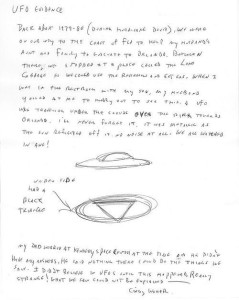 UFO EVIDENCE
BACK ABOUT 1979-80 (DURING HURRICANE DAVID), WE WERE
ON OUR WAY TO THE COAST OF FLA TO HELP MY HUSBAND'S
AUNT AND FAMILY TO EVACUATE TO ORLANDO. BETWEEN
THERE, WE STOPPED AT A PLACE CALLED THE LONE
CABBAGE TO USE THE RESTROOM AND EAT. WHEN I
WAS IN THE RESTROOM WITH MY SON, MY HUSBAND
YELLED AT ME TO HURRY OUT TO SEE THIS. A UFO
WAS TRAVELING UNDER THE CLOUDS OVER THE TOWARDS
ORLANDO. I'LL NEVER FORGET IT. IT WAS METALLIC AS
THE SUN REFLECTED OFF IT. NO NOISE AT ALL. WE ALL WATCHED
IN AWE!
UNDER SIDE
HAD A
BLACK
TRIANGLE
MY DAD WORKED AT KENNEDY SPACE CENTER AT THE TIME AND HE DIDN'T
HAVE ANY ANSWERS. HE SAID NOTHING THERE COULD DO THE THINGS WE
SAW. I DIDN'T BELIEVE IN UFOS UNTIL THIS HAPPENED. REALLY
STRANGE! WHAT WE SAW COULD NOT BE EXPLAINED
CINDY